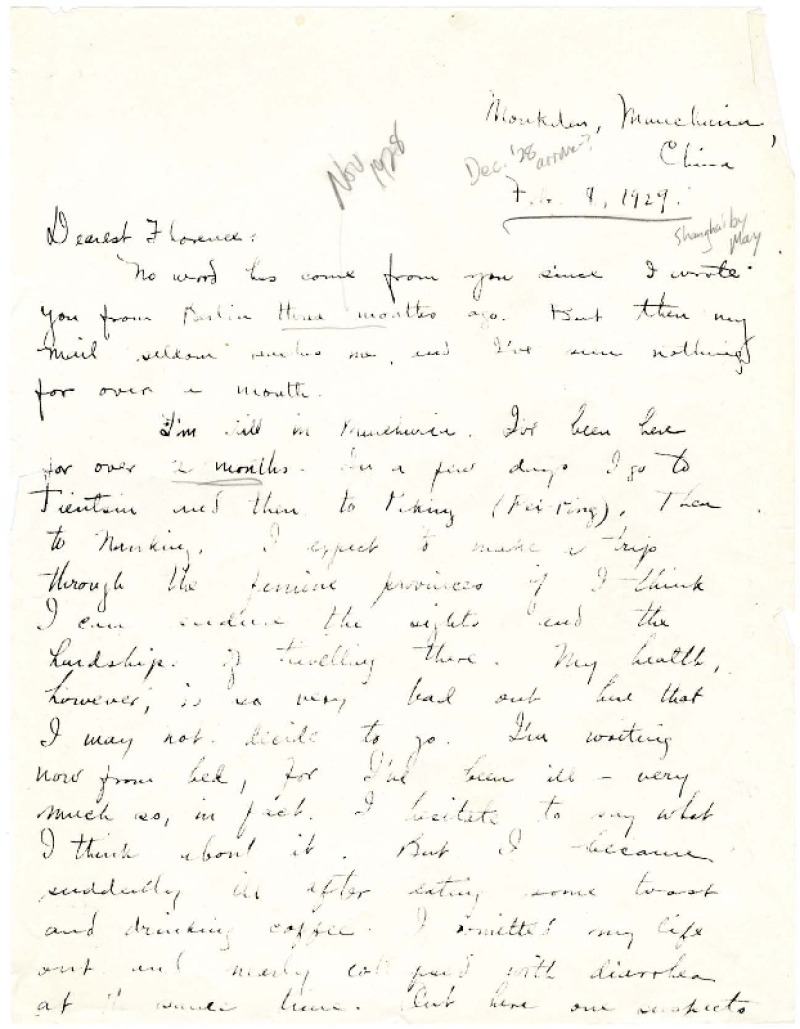 Moukden, Manchuria,
China
Nov 1928
Dec. '28 arrive?
Feb. 8, 1929.
Shanghai by
May
Dearest Florence:
No word has come from you since I wrote
you from Berlin three months ago. But then my
mail seldom reaches me, and I've seen nothing
for over a month.
I'm still in Manchuria. I've been here
for over 2 months. In a few days I go to
Tientsin and then to Peking (Pei-Ping), Then
to Nanking. I expect to make a trip
through the famine provinces if I think
I can endure the sights and the
hardship of travelling there. My health,
however, is so very bad out here that
I may not decide to go. I'm writing
now from bed, for I've been ill - very
much so, in fact. I hesitate to say what
I think about it. But I became
suddenly ill after eating some toast
and drinking coffee. I vomitted my life
out and nearly with diarrhea
at the same time. But here one suspects